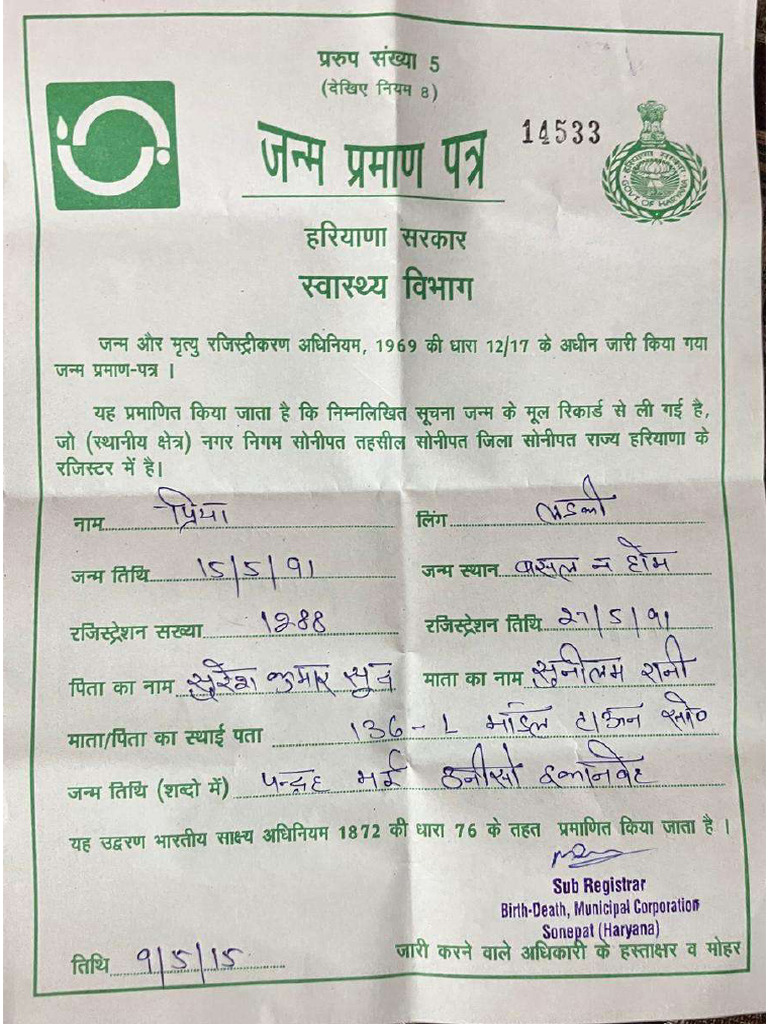 प्ररुप संख्या 5
(देखिए नियम 8)
14533
जन्म प्रमाण पत्र
हरियाणा सरकार
GOVT OF HARYANA
हरियाणा सरकार
स्वास्थ्य विभाग
जन्म और मृत्यु रजिस्ट्रीकरण अधिनियम, 1969 की धारा 12/17 के अधीन जारी किया गया
जन्म प्रमाण-पत्र ।
यह प्रमाणित किया जाता है कि निम्नलिखित सूचना जन्म के मूल रिकार्ड से ली गई है,
जो (स्थानीय क्षेत्र) नगर निगम सोनीपत तहसील सोनीपत जिला सोनीपत राज्य हरियाणा के
रजिस्टर में है।
नाम प्रिया लिंग लडकी
जन्म तिथि 15/5/91 जन्म स्थान होम
रजिस्ट्रेशन सख्या 1288 रजिस्ट्रेशन तिथि 27/5/91
पिता का नाम सुरेश कुमार सूद माता का नाम सुनीलम रानी
माता/पिता का स्थाई पता 136-L मॉडल टाऊन सो०
जन्म तिथि (शब्दो में) पन्द्रह मई उनीसो इकानवेह
यह उद्वरण भारतीय साक्ष्य अधिनियम 1872 की धारा 76 के तहत प्रमाणित किया जाता है ।
Sub Registrar
Birth-Death, Municipal Corporation
Sonepat (Haryana)
तिथि 9/5/15 जारी करने वाले अधिकारी के हस्ताक्षर व मोहर